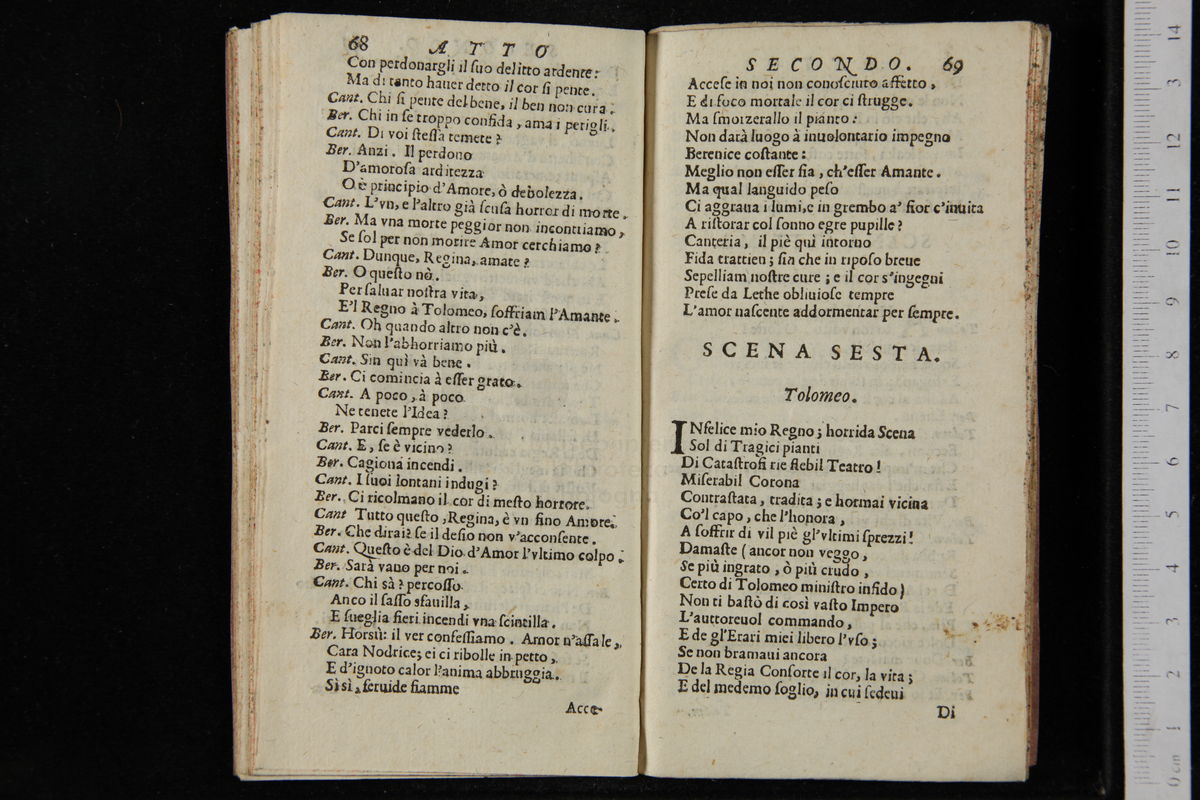 68 ATTO
Con perdonargli il ſuo delitto ardente:
Ma di tanto hauer detto il cor ſi pente.
Cant. Chi ſi pente del bene, il ben non cura.
Ber. Chi in ſe troppo confida, ama i perigli.
Cant. Di voi ſteſſa temete?
Ber. Anzi. Il perdono
D'amoroſa arditezza
O è principio d'Amore, ò debolezza.
Cant. L'vn, e l'altro già ſcuſa horror di morte.
Ber. Ma vna morte peggior non incontriamo,
Se ſol per non morire Amor cerchiamo?
Cant. Dunque, Regina, amate?
Ber. O queſto nò.
Per ſaluar noſtra vita,
E'l Regno à Tolomeo, ſoffriam l'Amante.
Cant. Oh quando altro non c'è.
Ber. Non l'abhorriamo più.
Cant. Sin quì và bene.
Ber. Ci comincia à eſſer grato.
Cant. A poco, à poco
Ne tenete l'Idea?
Ber. Parci ſempre vederlo.
Cant. E, ſe è vicino?
Ber. Cagiona incendi.
Cant. I ſuoi lontani indugi?
Ber. Ci ricolmano il cor di meſto horrore.
Cant Tutto queſto, Regina, è vn fino Amore.
Ber. Che dirai? ſe il deſio non v'acconſente.
Cant. Queſto è del Dio d'Amor l'vltimo colpo.
Ber. Sarà vano per noi.
Cant. Chi sà? percoſſo
Anco il ſaſſo sfauilla,
E ſueglia fieri incendi vna ſcintilla.
Ber. Horsù: il ver confeſſiamo. Amor n'aſſale,
Cara Nodrice; ei ci ribolle in petto,
E d'ignoto calor l'anima abbruggia.
Sì sì, feruide fiamme
Acce-
SECONDO. 69
Acceſe in noi non conoſciuto affetto,
E di foco mortale il cor ci ſtrugge.
Ma ſmorzerallo il pianto:
Non darà luogo à inuolontario impegno
Berenice coſtante:
Meglio non eſſer fia, ch'eſſer Amante.
Ma qual languido peſo
Ci aggraua i lumi, e in grembo a' fior c'inuita
A riſtorar col ſonno egre pupille?
Canteria, il piè quì intorno
Fida trattien; ſin che in ripoſo breue
Sepelliam noſtre cure; e il cor s'ingegni
Preſe da Lethe obliuioſe tempre
L'amor naſcente addormentar per ſempre.
SCENA SESTA.
Tolomeo.
INfelice mio Regno; horrida Scena
Sol di Tragici pianti
Di Cataſtrofi rie flebil Teatro!
Miſerabil Corona
Contraſtata, tradita; e hormai vicina
Co'l capo, che l'honora,
A ſoffrir di vil piè gl'vltimi ſprezzi!
Damaſte (ancor non veggo,
Se più ingrato, ò più crudo,
Certo di Tolomeo miniſtro infido)
Non ti baſtò di così vaſto Impero
L'auttoreuol commando,
E de gl'Erari miei libero l'vſo;
Se non bramaui ancora
De la Regia Conſorte il cor, la vita;
E del medemo ſoglio, in cui ſedeui
Di